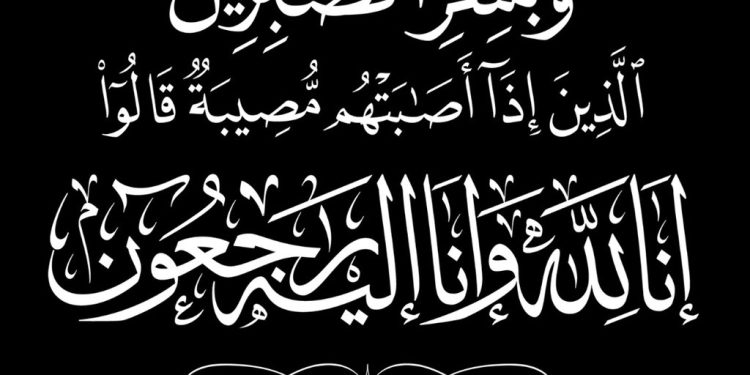 وَبَشِّرِ الصَّابِرِينَ
الَّذِينَ إِذَآ أَصَابَتْهُم مُّصِيبَةٌ قَالُوٓا۟
إنا لله وإنا إليه راجعون